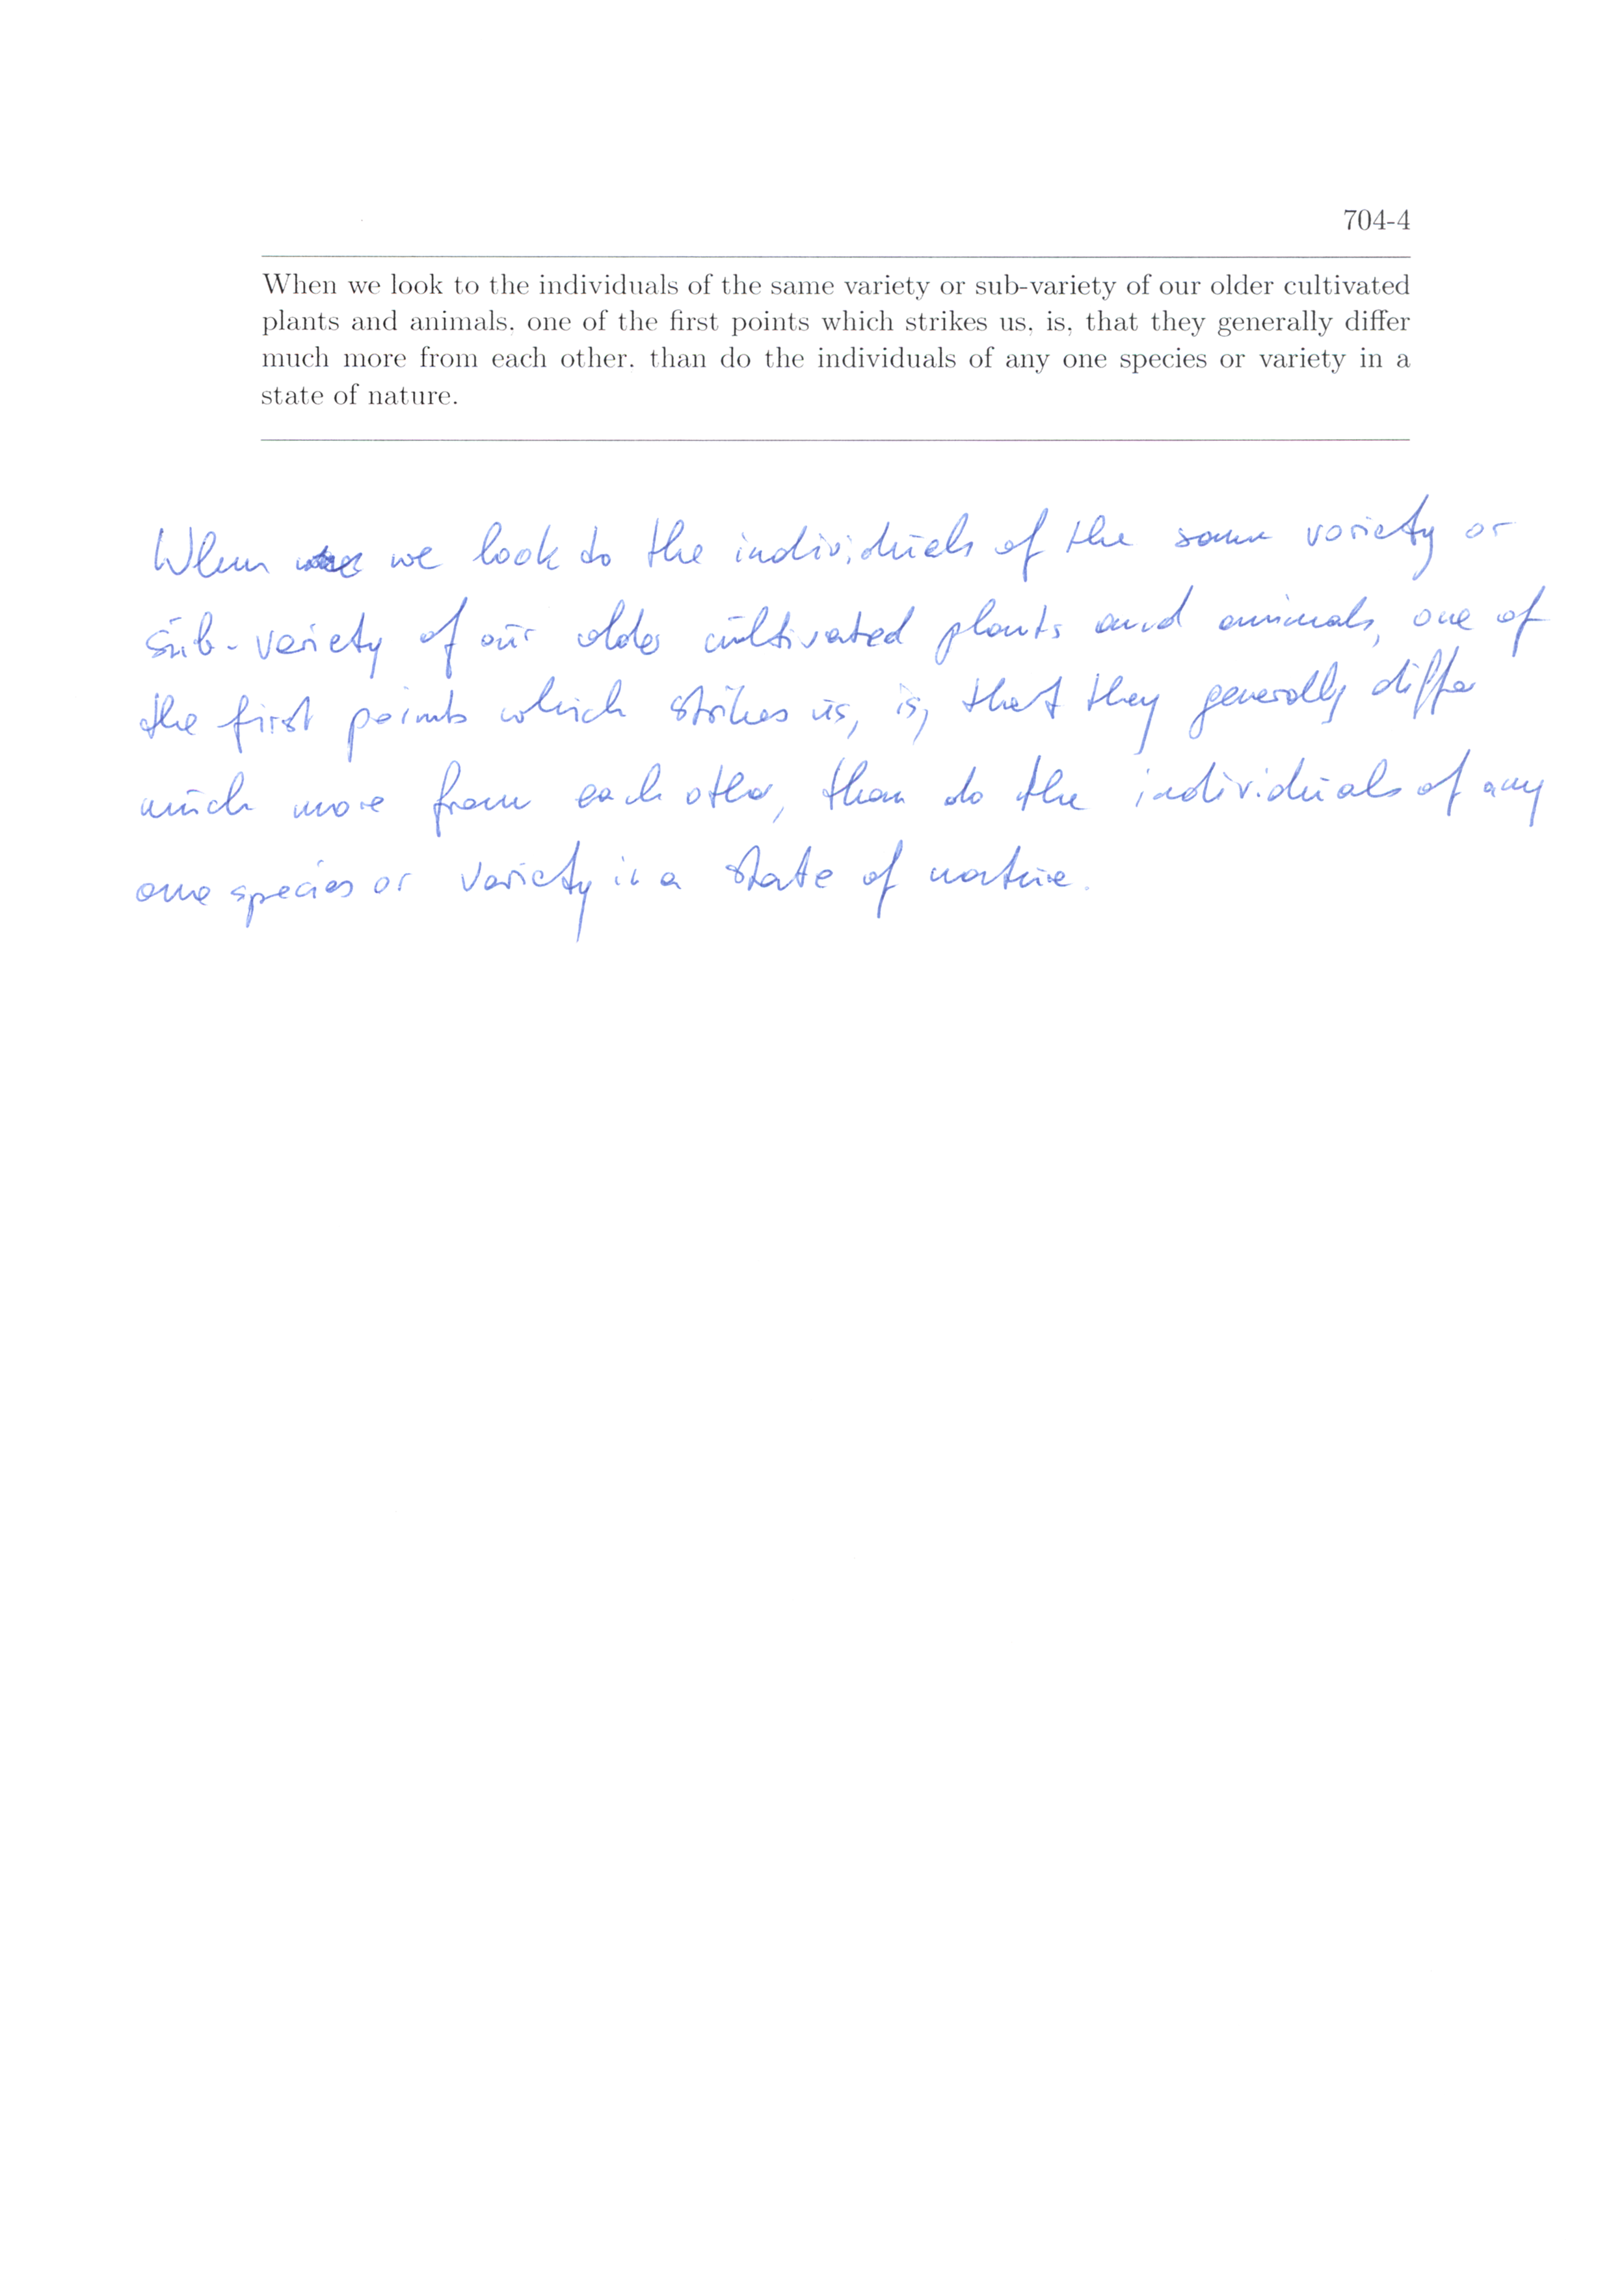 704-4
When we look to the individuals of the same variety or sub-variety of our older cultivated
plants and animals, one of the first points which strikes us, is, that they generally differ
much more from each other, than do the individuals of any one species or variety in a
state of nature.
When we look to the individuals of the same variety or
sub-variety of our older cultivated plants and animals, one of
the first points which strikes us, is, that they generally differ
much more from each other, than do the individuals of any
one species or variety in a state of nature.